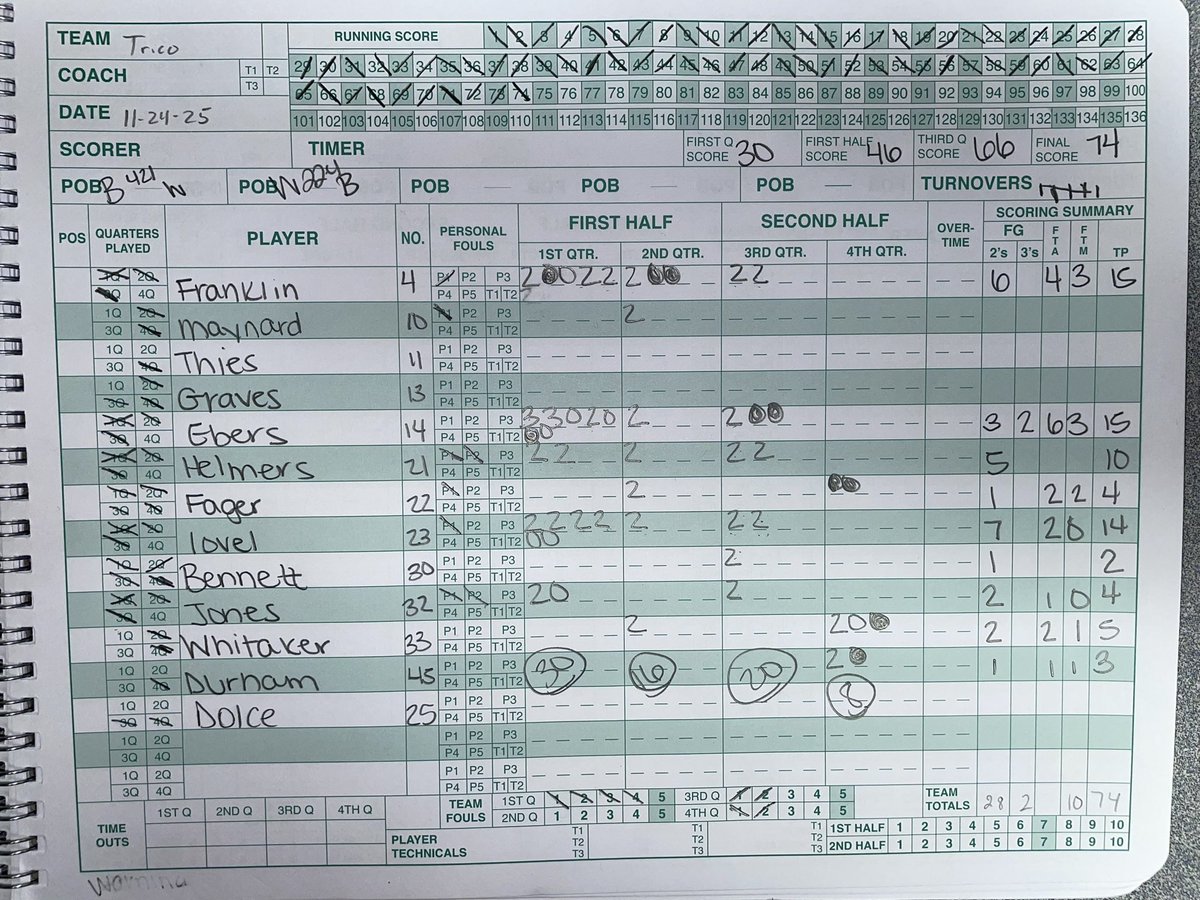 TEAM Trico RUNNING SCORE 1 2 3 4 5 6 7 8 9 10 11 12 13 14 15 16 17 18 19 20 21 22 23 24 25 26 27 28
COACH T1 T2 T3 29 30 31 32 33 34 35 36 37 38 39 40 41 42 43 44 45 46 47 48 49 50 51 52 53 54 55 56 57 58 59 60 61 62 63 64
65 66 67 68 69 70 71 72 73 74 75 76 77 78 79 80 81 82 83 84 85 86 87 88 89 90 91 92 93 94 95 96 97 98 99 100
DATE 11-24-25 101 102 103 104 105 106 107 108 109 110 111 112 113 114 115 116 117 118 119 120 121 122 123 124 125 126 127 128 129 130 131 132 133 134 135 136
SCORER TIMER FIRST Q SCORE 30 FIRST HALF SCORE 46 THIRD Q SCORE 66 FINAL SCORE 74
POB B 421 W POB W 224 B POB — POB — POB — TURNOVERS
POS QUARTERS PLAYED PLAYER NO. PERSONAL FOULS FIRST HALF SECOND HALF OVER-TIME SCORING SUMMARY
1ST QTR. 2ND QTR. 3RD QTR. 4TH QTR. FG 2's 3's FTA FTM TP
1Q 2Q 3Q 4Q Franklin 4 P1 P2 P3 P4 P5 T1 T2 2 0 0 2 2 2 2 0 0 2 2 6 4 3 15
1Q 2Q 3Q 4Q Maynard 10 P1 P2 P3 P4 P5 T1 T2 2
1Q 2Q 3Q 4Q Thies 11 P1 P2 P3 P4 P5 T1 T2
1Q 2Q 3Q 4Q Graves 13 P1 P2 P3 P4 P5 T1 T2
1Q 2Q 3Q 4Q Ebers 14 P1 P2 P3 P4 P5 T1 T2 3 3 0 2 0 0 0 2 2 0 0 3 2 6 3 15
1Q 2Q 3Q 4Q Helmers 21 P1 P2 P3 P4 P5 T1 T2 2 2 2 2 2 5 10
1Q 2Q 3Q 4Q Fager 22 P1 P2 P3 P4 P5 T1 T2 2 0 0 1 2 2 4
1Q 2Q 3Q 4Q Lovel 23 P1 P2 P3 P4 P5 T1 T2 2 2 2 2 0 0 2 2 2 7 2 0 14
1Q 2Q 3Q 4Q Bennett 30 P1 P2 P3 P4 P5 T1 T2 2 1 2
1Q 2Q 3Q 4Q Jones 32 P1 P2 P3 P4 P5 T1 T2 2 0 2 2 1 0 4
1Q 2Q 3Q 4Q Whitaker 33 P1 P2 P3 P4 P5 T1 T2 2 2 0 0 2 2 1 5
1Q 2Q 3Q 4Q Durham 45 P1 P2 P3 P4 P5 T1 T2 30 16 20 2 0 1 1 1 3
1Q 2Q 3Q 4Q Dolce 25 P1 P2 P3 P4 P5 T1 T2 8
1Q 2Q 3Q 4Q P1 P2 P3 P4 P5 T1 T2
1Q 2Q 3Q 4Q P1 P2 P3 P4 P5 T1 T2
TIME OUTS 1ST Q 2ND Q 3RD Q 4TH Q TEAM FOULS 1ST Q 1 2 3 4 5 3RD Q 1 2 3 4 5 TEAM TOTALS 28 2 10 74
2ND Q 1 2 3 4 5 4TH Q 1 2 3 4 5
PLAYER TECHNICALS T1 T2 T3 T1 T2 T3 T1 T2 T3 1ST HALF 1 2 3 4 5 6 7 8 9 10
2ND HALF 1 2 3 4 5 6 7 8 9 10
Warning